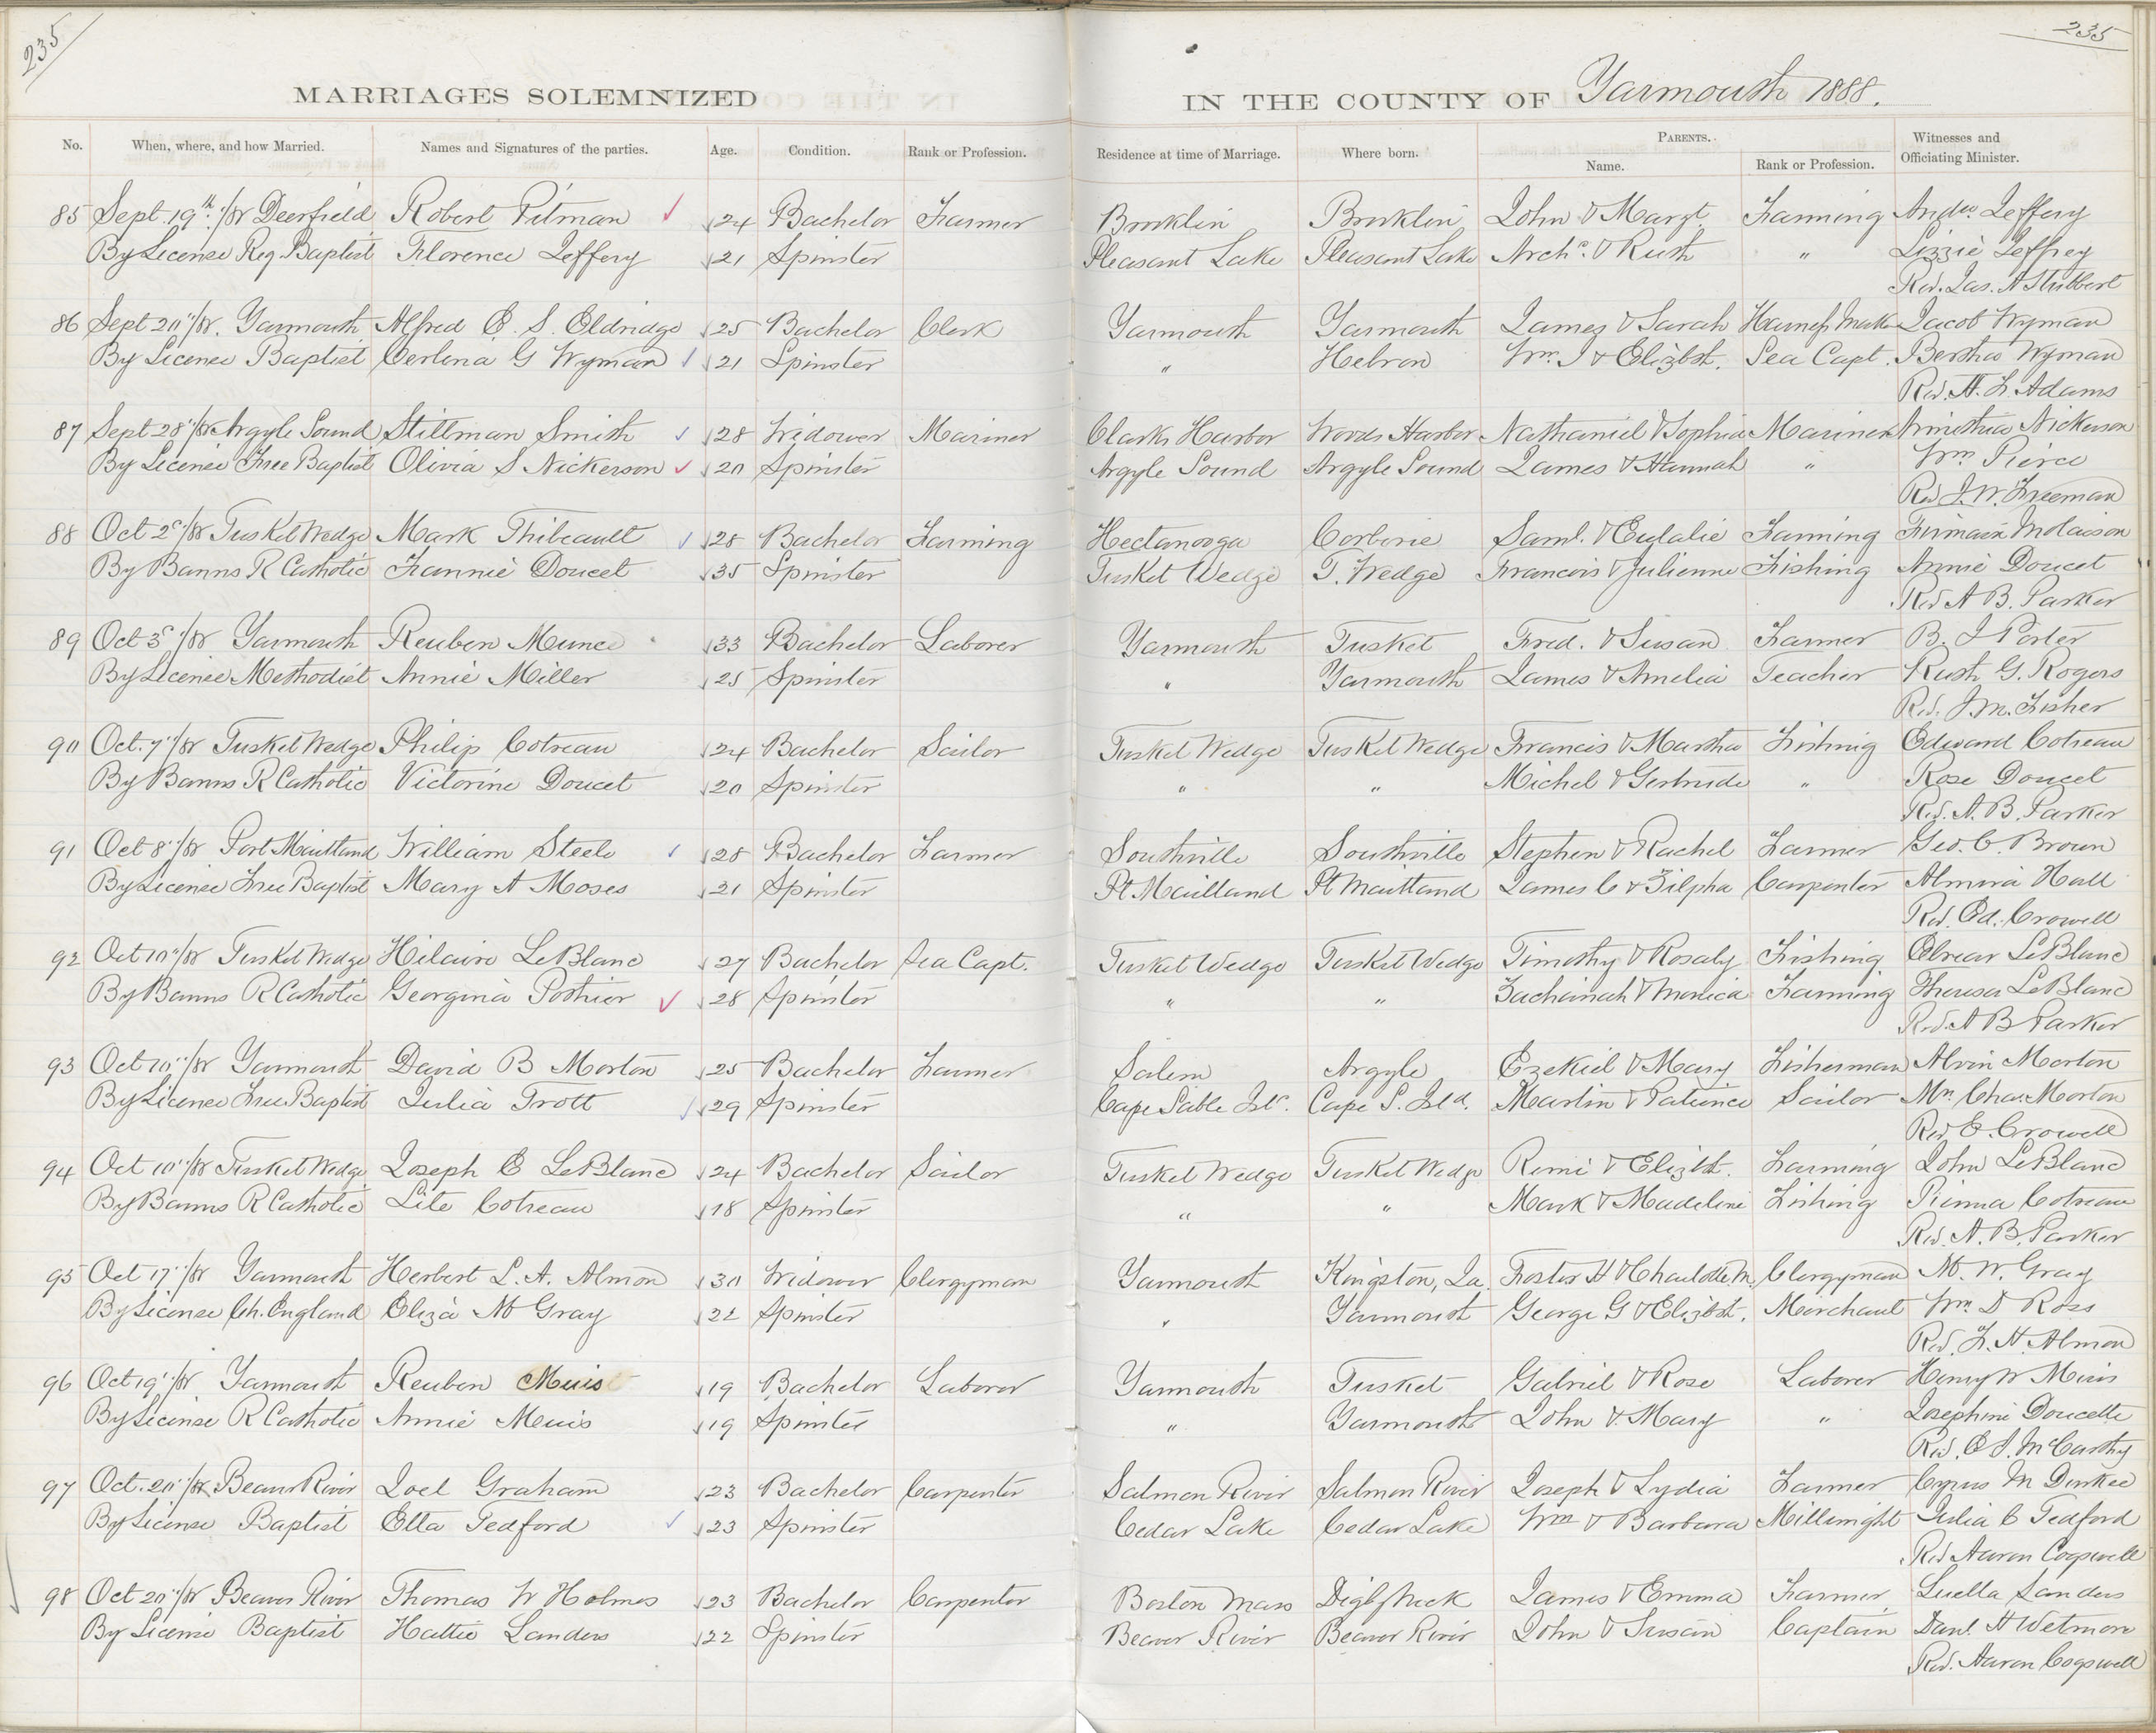 235
235
MARRIAGES SOLEMNIZED IN THE COUNTY OF Yarmouth 1888.
No. When, where, and how Married. Names and Signatures of the parties. Age. Condition. Rank or Profession. Residence at time of Marriage. Where born. PARENTS. Name. Rank or Profession. Witnesses and Officiating Minister.
85 Sept. 19th /88 Deerfield Robert Pitman 24 Bachelor Farmer Brooklin Brooklin John & Margt. Farming Andw Jeffery
By License Reg. Baptist Florence Jeffery 21 Spinster Pleasant Lake Pleasant Lake Archd. & Ruth " Lizzie Jeffrey
Rev. Jas. A Stubbert
86 Sept 20"/88. Yarmouth Alfred E. S. Eldridge 25 Bachelor Clerk Yarmouth Yarmouth James & Sarah Harness Maker Jacob Wyman
By License Baptist Gerlena G Wyman 21 Spinster " Hebron Wm. J & Elizbth. Sea Capt. Bertha Wyman
Rev. H. F. Adams
87 Sept 28"/88 Argyle Sound Stillman Smith 28 Widower Mariner Clarks Harbor Woods Harbor Nathaniel & Sophia Mariner Nickerson
By License Free Baptist Olivia S Nickerson 20 Spinster Argyle Sound Argyle Sound James & Hannah " Wm Pierce
Rev J. W. Freeman
88 Oct 2d/88 Tusket Wedge Mark Thibeault 28 Bachelor Farming Hectanooga Corberie Saml. & Eulalie Farming Firmain Molaison
By Banns R Catholic Frannie Doucet 35 Spinster Tusket Wedge T. Wedge Francois & Julienne Fishing Annie Doucet
Rev A B. Parker
89 Oct 3d/88 Yarmouth Reuben Munce 33 Bachelor Laborer Yarmouth Tusket Fred. & Susan Farmer B. J Porter
By License Methodist Annie Miller 25 Spinster " Yarmouth James & Amelia Teacher Ruth G. Rogers
Rev. J. M. Fisher
90 Oct. 7"/88 Tusket Wedge Philip Cotreau 24 Bachelor Sailor Tusket Wedge Tusket Wedge Francis & Martha Fishing Edward Cotreau
By Banns R Catholic Victorine Doucet 20 Spinster " " Michel & Gertrude " Rose Doucet
Rev. A. B. Parker
91 Oct 8"/88 Port Maitland William Steele 28 Bachelor Farmer Southville Southville Stephen & Rachel Farmer Geo. C. Brown
By License Free Baptist Mary A Moses 21 Spinster Pt Maitland Pt Maitland James C & Zilpha Carpenter Almira Hall
Rev. Ed. Crowell
92 Oct 10"/88 Tusket Wedge Hilaire LeBlanc 27 Bachelor Sea Capt. Tusket Wedge Tusket Wedge Timothy & Rosaly Fishing LeBlanc
By Banns R Catholic Georgina Pothier 28 Spinster " " Zachariah & Monica Farming Theresa LeBlanc
Rev. A B Parker
93 Oct 10"/88 Yarmouth David B Morton 25 Bachelor Farmer Salem Argyle Ezekiel & Mary Fisherman Alvin Morton
By License Free Baptist Julia Trott 29 Spinster Cape Sable Isld. Cape S. Isld. Martin & Patience Sailor Mrs. Chas. Morton
Rev E. Crowell
94 Oct 10"/88 Tusket Wedge Joseph E LeBlanc 24 Bachelor Sailor Tusket Wedge Tusket Wedge Remi & Elizbth. Farming John LeBlanc
By Banns R Catholic Lite Cotreau 18 Spinster " " Mark & Madeline Fishing Cotreau
Rev. A. B. Parker
95 Oct 17"/88 Yarmouth Herbert L. A. Almon 30 Widower Clergyman Yarmouth Kingston, Ja. Foster H & Charlotte M. Clergyman M. W. Gray
By License Ch. England Eliza M Gray 22 Spinster " Yarmouth George G & Elizbth. Merchant Wm. D Ross
Rev. F. H. Almon
96 Oct 19"/88 Yarmouth Reuben Muis 19 Bachelor Laborer Yarmouth Tusket Gabriel & Rose Laborer Henry W Muis
By License R Catholic Annie Meuis 19 Spinster " Yarmouth John & Mary " Josephine Doucette
Rev. E J. McCarthy
97 Oct. 20"/88 Beaver River Joel Graham 23 Bachelor Carpenter Salmon River Salmon River Joseph & Lydia Farmer Cyrus M Durkee
By License Baptist Etta Tedford 23 Spinster Cedar Lake Cedar Lake Wm & Barbara Millwright Julia C Tedford
Rev Aaron Cogswell
98 Oct 20"/88 Beaver River Thomas W Holmes 23 Bachelor Carpenter Boston Mass Digby Neck James & Emma Farmer Luella Sanders
By License Baptist Hattie Landers 22 Spinster Beaver River Beaver River John & Susan Captain Danl. H Wetmore
Rev. Aaron Cogswell